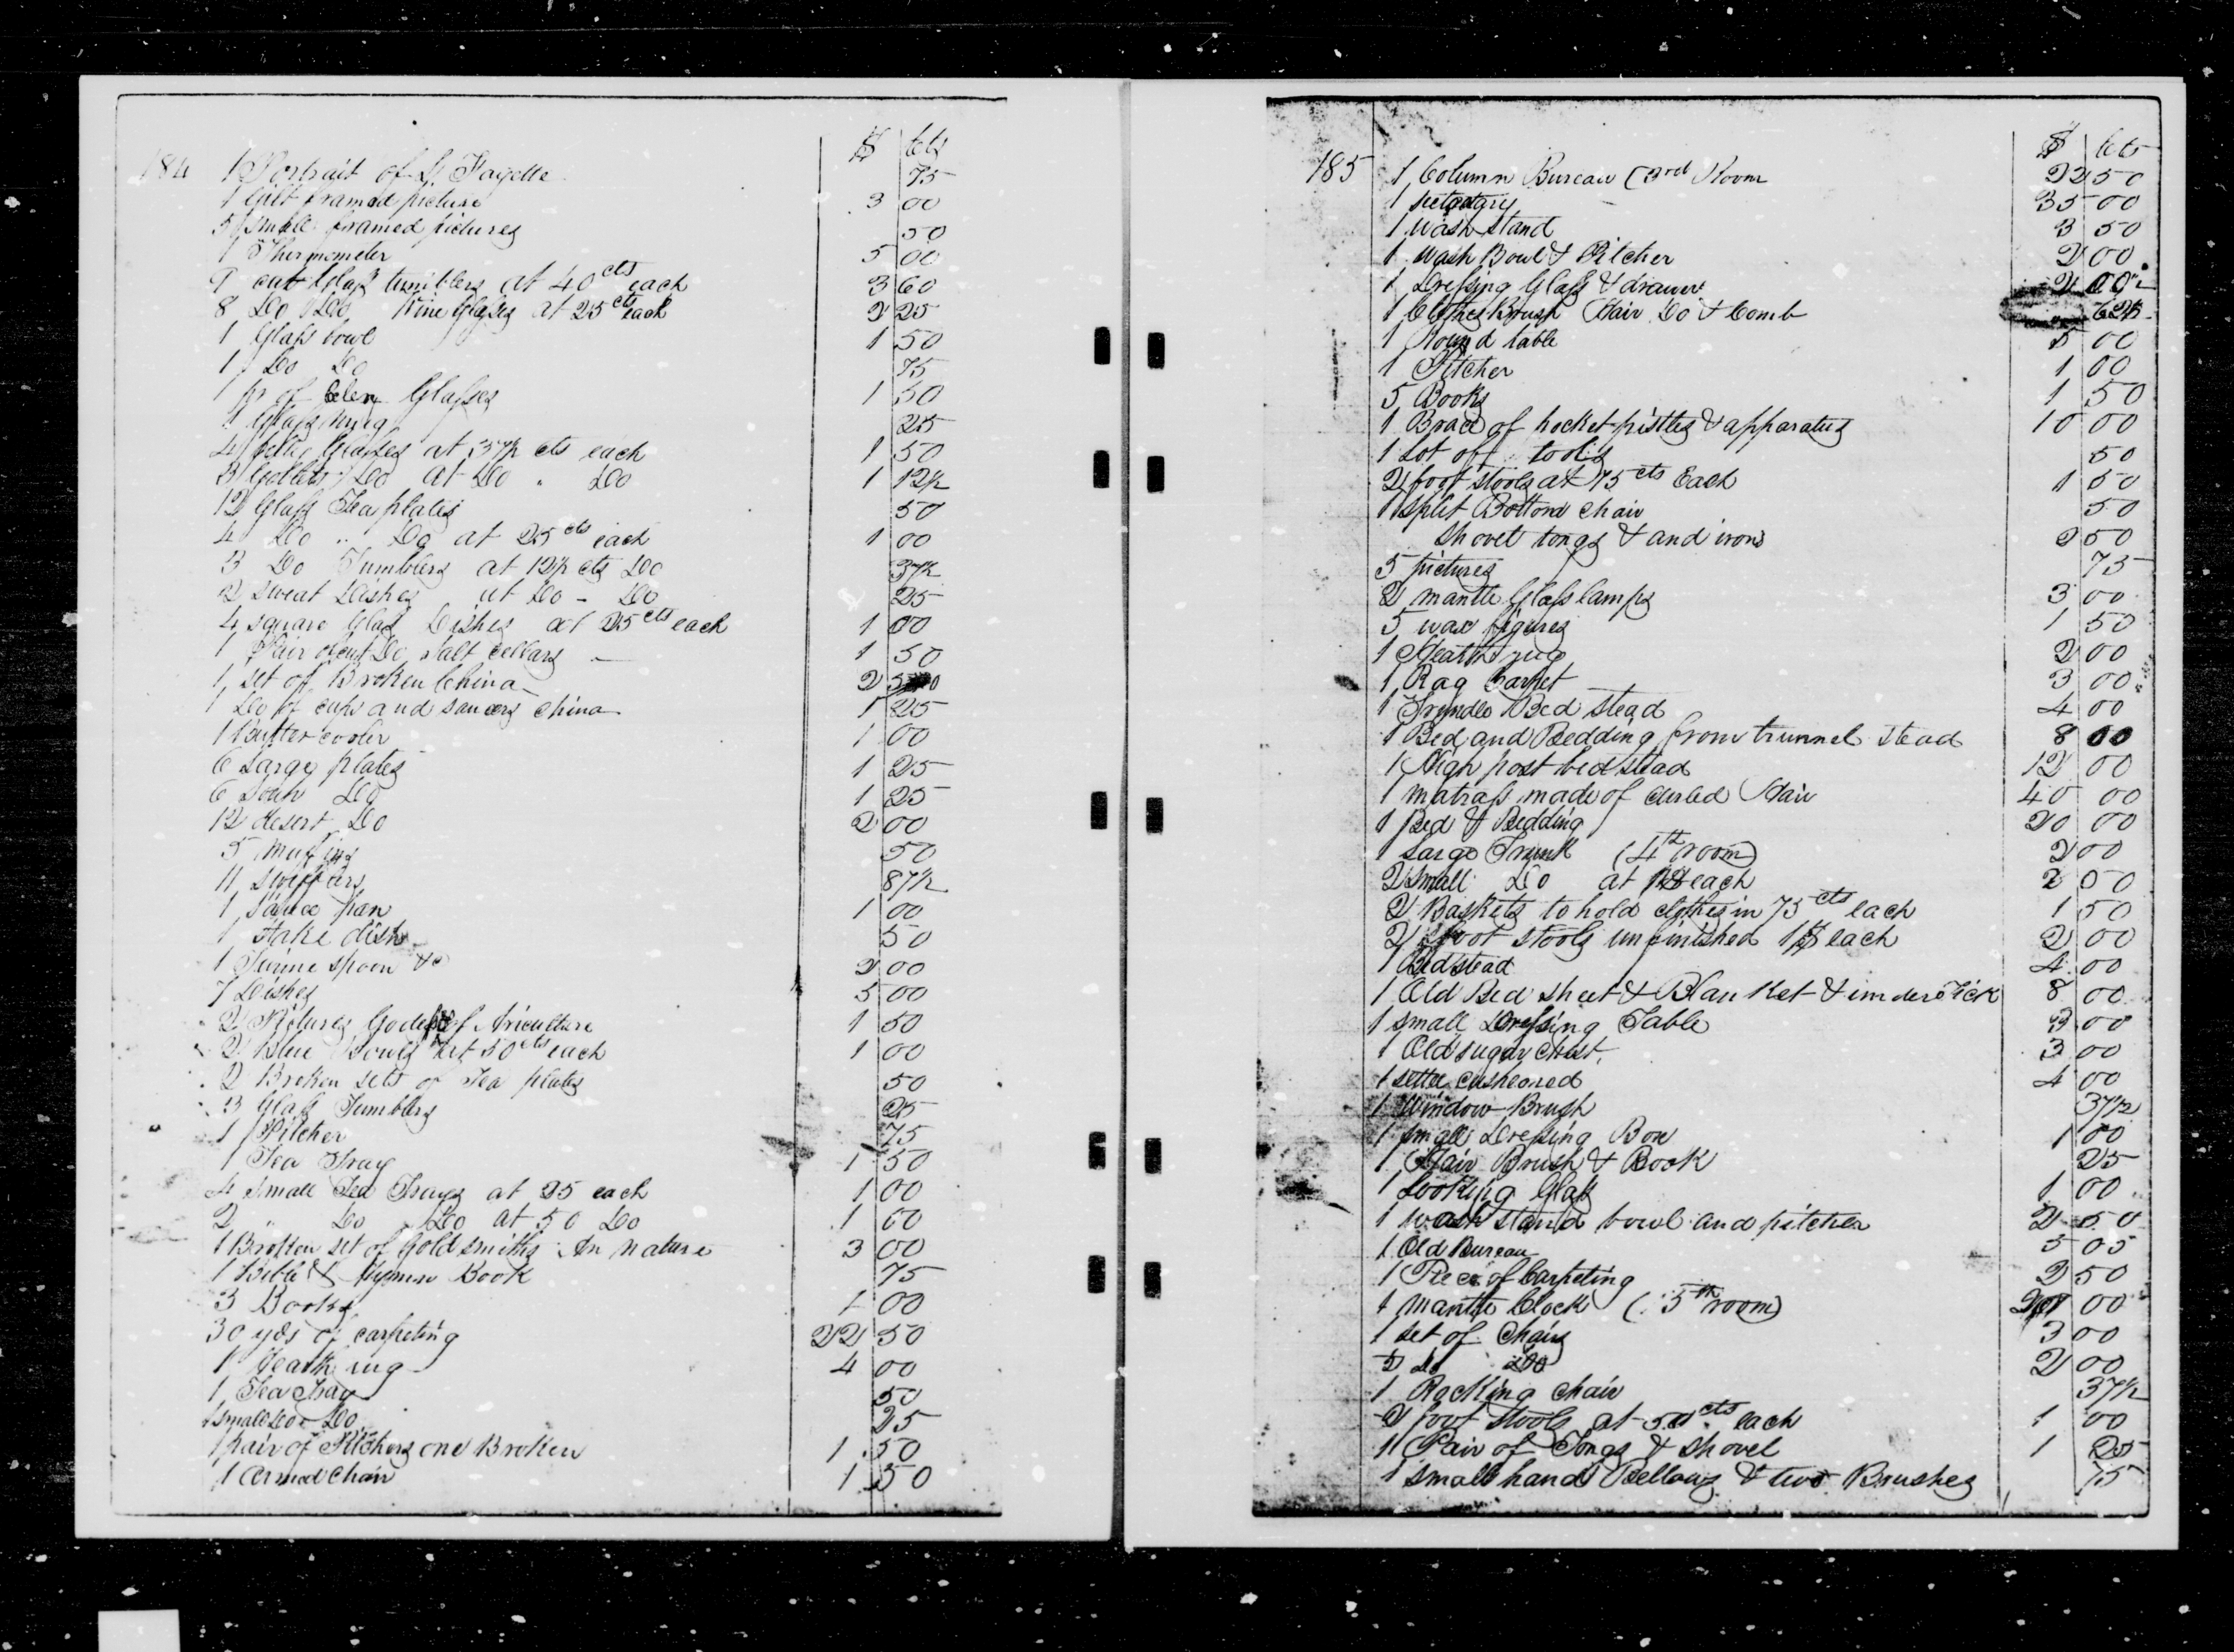 $ Cts
184 1 Portrait of La Fayette 75
1 Gilt framed picture 3 00
5 small framed pictures 50
1 Thermometer 5 00
9 cut Glass tumblers at 40 cts each 3 60
8 Do Do Wine Glasses at 25 cts each 2 25
1 Glass bowl 1 50
1 Do Do 75
1 pr of Celery Glasses 1 50
1 Glass mug 25
4 Glasses at 37½ cts each 1 50
3 Goblets Do at Do " Do 1 12½
12 Glass Tea plates 50
4 Do " Do at 25 cts each 1 00
3 Do Tumblers at 12½ cts Do 37½
2 Sweat Dishes at Do - Do 25
4 square Glass Dishes at 25 cts each 1 00
1 Pair of cut Do salt cellars 1 50
1 set of Broken China 2
1 Do of cups and saucers china 1 25
1 Butter cooler 1 00
6 Large plates 1 25
6 Soup Do 1 25
12 desert Do 2 00
5 Muffins 50
11 87½
1 Sauce pan 1 00
1 Stake dish 50
1 Turine spoon &c 2 00
7 Dishes 5 00
2 Pictures Godess of Ariculture 1 50
2 Blue Bowls at 50 cts each 1 00
2 Broken sets of Tea plates 50
3 Glass Tumblers 25
1 Pitcher 75
1 Tea Tray 1 50
4 small Tea Trays at 25 each 1 00
2 " Do Do at 50 Do 1 00
1 Broken set of Goldsmiths An nature 3 00
1 Bible & Hymn Book 75
3 Books 1 00
30 yds of carpeting 22 50
1 Hearth rug 4 00
1 Tea Tray 50
1 small Do Do 25
1 pair of Pitchers one Broken 1 50
1 Armed Chair 1 50
$ Cts
185 1 Column Bureau (3rd Room 22 50
1 secretary 35 00
1 wash stand 3 50
1 Wash Bowl & Pitcher 2 00
1 Dressing Glass & drawer 2 00
1 Clothes Brush Hair Do & Comb 62½
1 Round table 5 00
1 Pitcher 1 00
5 Books 1 50
1 Brace of pocket pistles & apparatus 10 00
1 Lot of tools 50
2 foot stools at 75 cts Each 1 50
1 split Bottom chair 50
shovel tongs & and irons 2 50
5 pictures 75
2 mantle Glass lamps 3 00
5 wax figures 1 50
1 Hearth rug 2 00
1 Rag Carpet 3 00
1 Trundle Bed stead 4 00
1 Bed and Bedding from trunnel stead 8 00
1 High post bed stead 12 00
1 matrass made of curled Hair 40 00
1 Bed & Bedding 20 00
1 Large Trunk (4th room) 2 00
2 small Do at each 2 00
2 Baskets to hold clothes in 75 cts each 1 50
2 foot stools unfinished 1$ each 2 00
1 Bedstead 4 00
1 Old Bed sheet & Blanket & under Tick 8 00
1 small Dressing Table 3 00
1 Old sugar chest 3 00
1 settee cusheoned 4 00
1 Window Brush 37½
1 small Dressing Box 1 00
1 Hair Brush & Book 25
1 Looking Glass 1 00
1 wash stand bowl and pitcher 2 50
1 Old Bureau 5 05
1 Piece of Carpeting 2 50
1 Mantle Clock (5th room) 00
1 set of Chairs 3 00
5 Do Do 2 00
1 Rocking chair 37½
2 foot stools at 50 cts each 1 00
1 Pair of Tongs & shovel 1 25
1 small hand Bellows & two Brushes 75